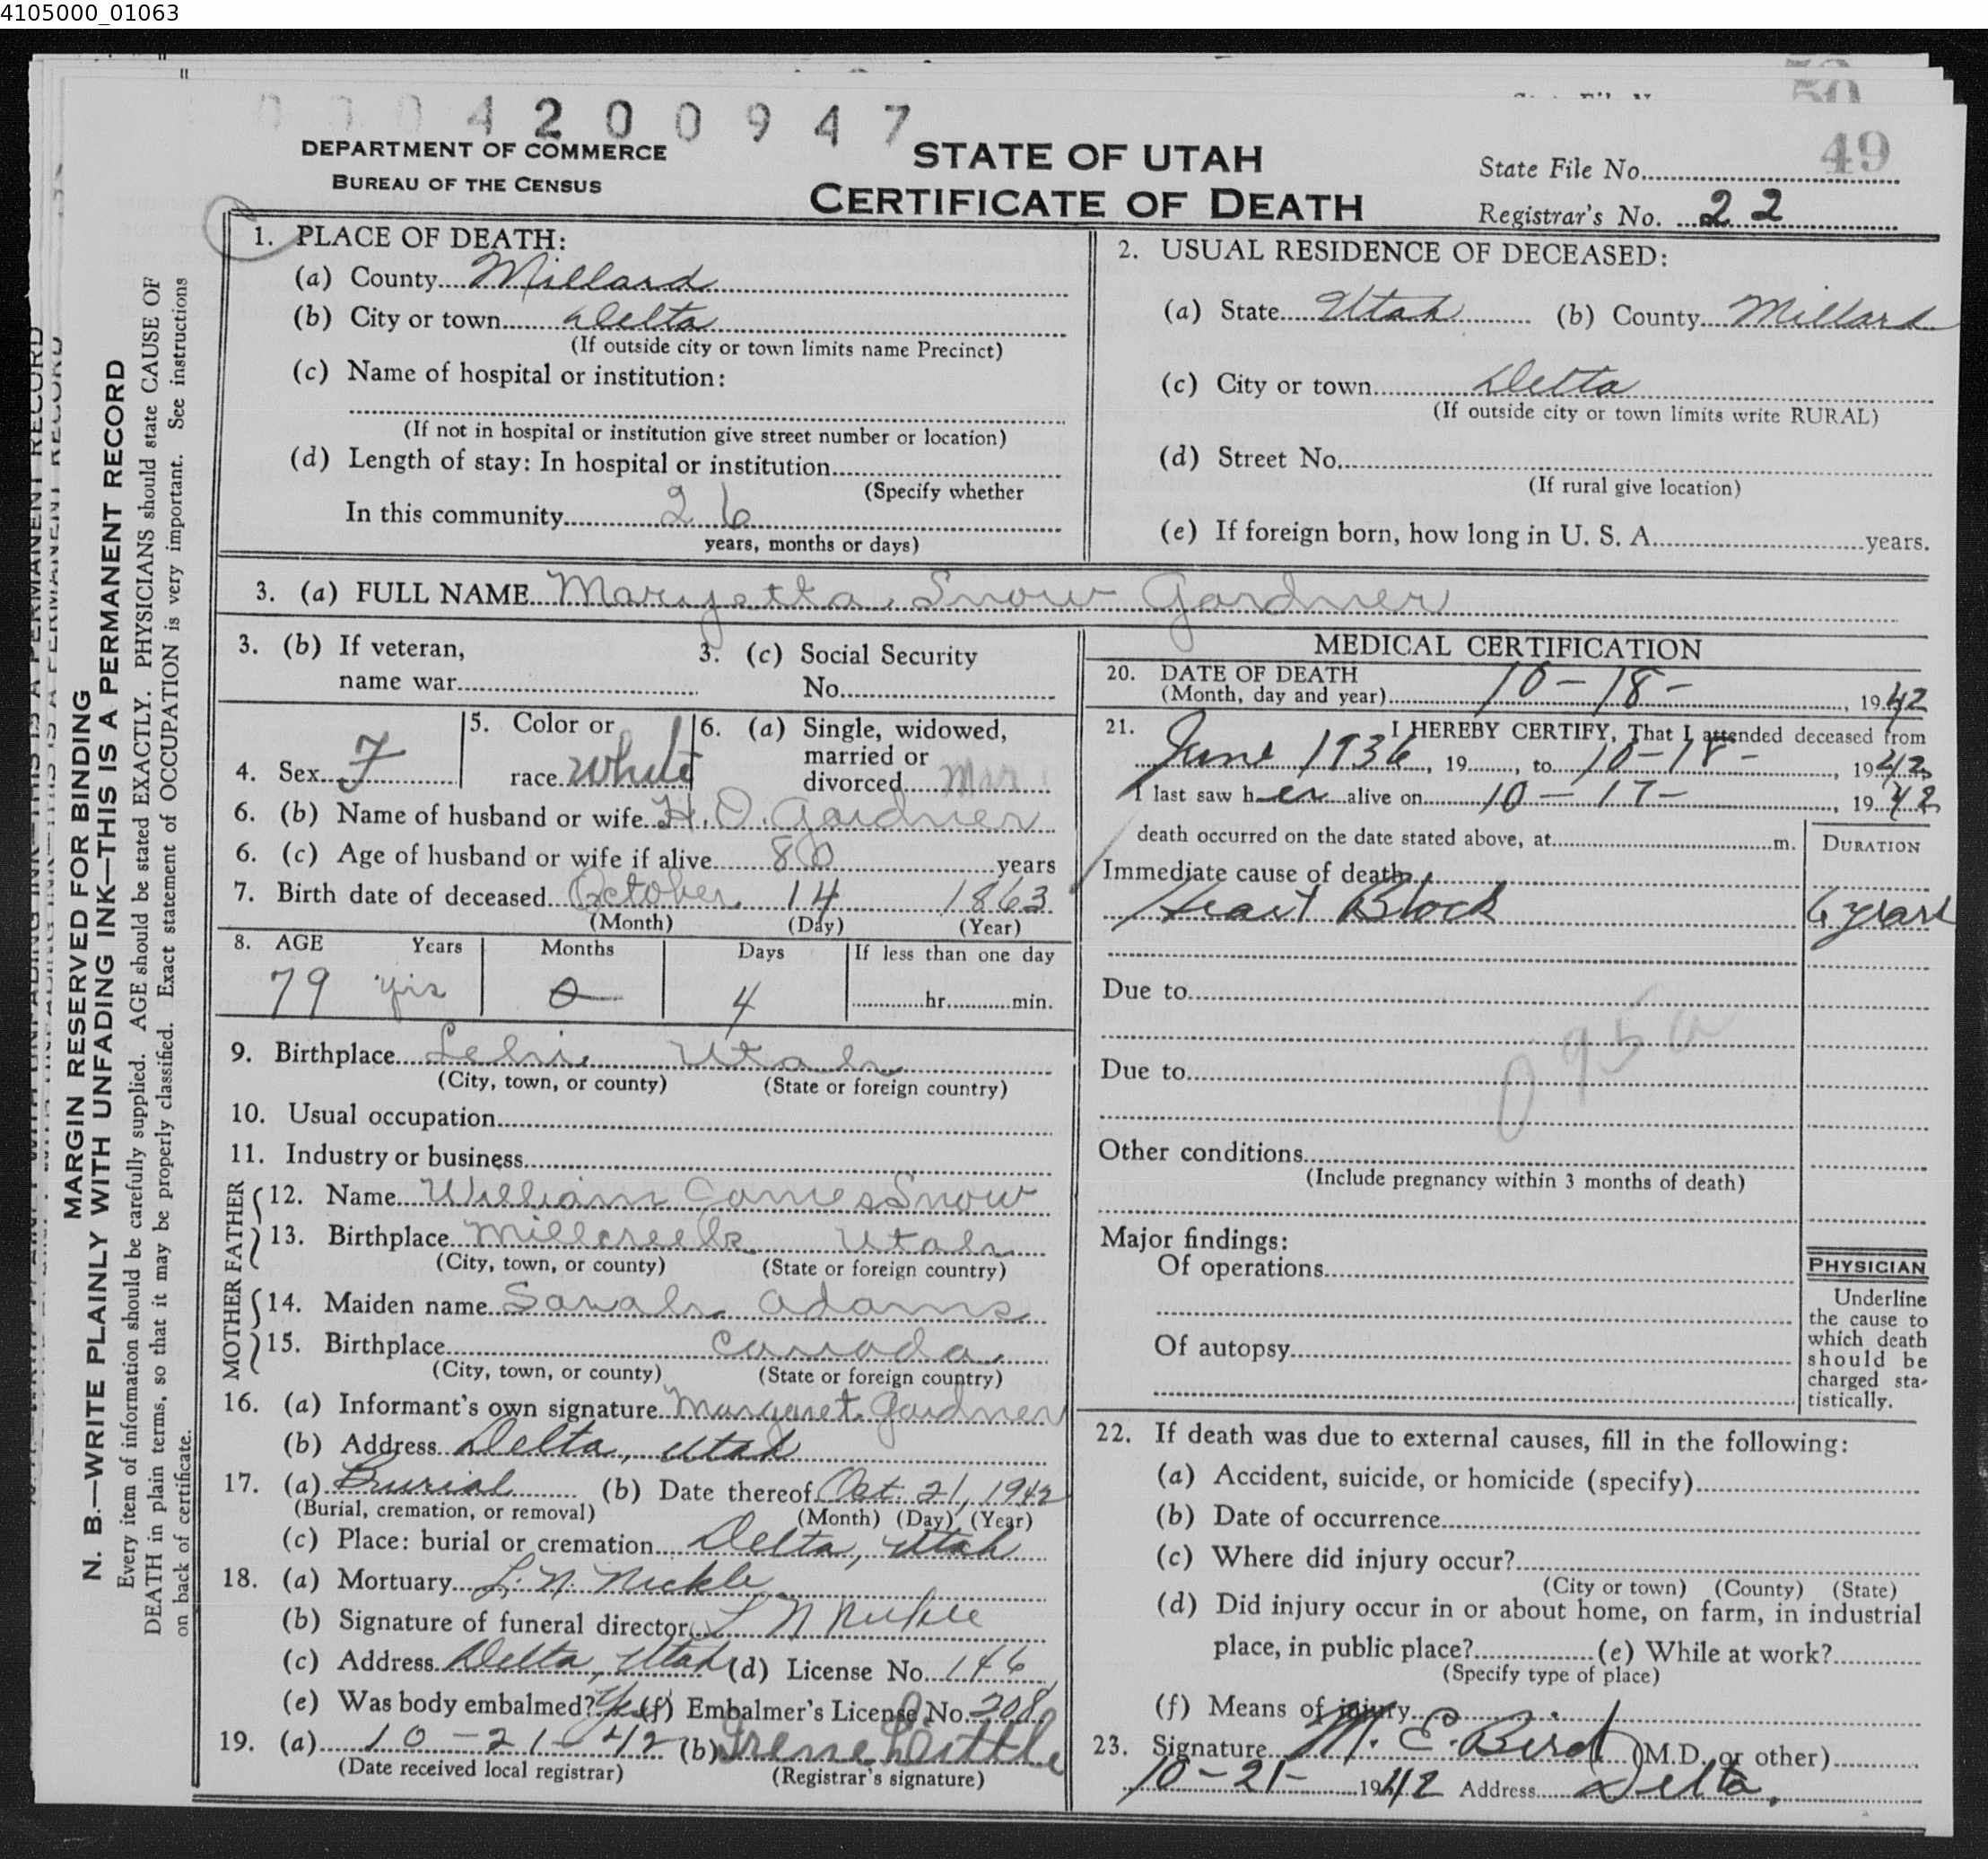 4105000_01063
4200947
DEPARTMENT OF COMMERCE
BUREAU OF THE CENSUS
STATE OF UTAH
CERTIFICATE OF DEATH
50
49
State File No.
Registrar's No. 22
MARGIN RESERVED FOR BINDING
N. B.—WRITE PLAINLY WITH UNFADING INK—THIS IS A PERMANENT RECORD
Every item of information should be carefully supplied. AGE should be stated EXACTLY. PHYSICIANS should state CAUSE OF
DEATH in plain terms, so that it may be properly classified. Exact statement of OCCUPATION is very important. See instructions
on back of certificate.
1. PLACE OF DEATH:
(a) County Millard
(b) City or town Delta
(If outside city or town limits name Precinct)
(c) Name of hospital or institution:
(If not in hospital or institution give street number or location)
(d) Length of stay: In hospital or institution
(Specify whether
In this community 26
years, months or days)
2. USUAL RESIDENCE OF DECEASED:
(a) State Utah (b) County Millard
(c) City or town Delta
(If outside city or town limits write RURAL)
(d) Street No.
(If rural give location)
(e) If foreign born, how long in U. S. A. years.
3. (a) FULL NAME Maryetta Snow Gardner
3. (b) If veteran,
name war
3. (c) Social Security
No.
4. Sex F
5. Color or
race White
6. (a) Single, widowed,
married or
divorced Mar
6. (b) Name of husband or wife H. O. Gardner
6. (c) Age of husband or wife if alive 80 years
7. Birth date of deceased October 14 1863
(Month) (Day) (Year)
8. AGE Years Months Days If less than one day
79 yrs 0 4 hr. min.
9. Birthplace Lehi Utah
(City, town, or county) (State or foreign country)
10. Usual occupation
11. Industry or business
FATHER
12. Name William James Snow
13. Birthplace Millcreek Utah
(City, town, or county) (State or foreign country)
MOTHER
14. Maiden name Sarah Adams
15. Birthplace Canada
(City, town, or county) (State or foreign country)
16. (a) Informant's own signature Margaret Gardner
(b) Address Delta, Utah
17. (a) Burial (b) Date thereof Oct. 21, 1942
(Burial, cremation, or removal) (Month) (Day) (Year)
(c) Place: burial or cremation Delta, Utah
18. (a) Mortuary L. N. Nickle
(b) Signature of funeral director L N Nickle
(c) Address Delta, Utah (d) License No. 146
(e) Was body embalmed? Yes (f) Embalmer's License No. 208
19. (a) 10-21-42 (b) Irene Little
(Date received local registrar) (Registrar's signature)
MEDICAL CERTIFICATION
20. DATE OF DEATH
(Month, day and year) 10-18-, 1942
21. I HEREBY CERTIFY, That I attended deceased from
June 1936, 19, to 10-18-, 1942
I last saw her alive on 10-17-, 1942
death occurred on the date stated above, at m.
DURATION
Immediate cause of death
Heart Block 6 years
Due to
095a
Due to
Other conditions
(Include pregnancy within 3 months of death)
Major findings:
Of operations
Of autopsy
PHYSICIAN
Underline
the cause to
which death
should be
charged sta-
tistically.
22. If death was due to external causes, fill in the following:
(a) Accident, suicide, or homicide (specify)
(b) Date of occurrence
(c) Where did injury occur?
(City or town) (County) (State)
(d) Did injury occur in or about home, on farm, in industrial
place, in public place? (e) While at work?
(Specify type of place)
(f) Means of injury
23. Signature M. E. Bird (M.D. or other)
10-21- 1942 Address Delta.